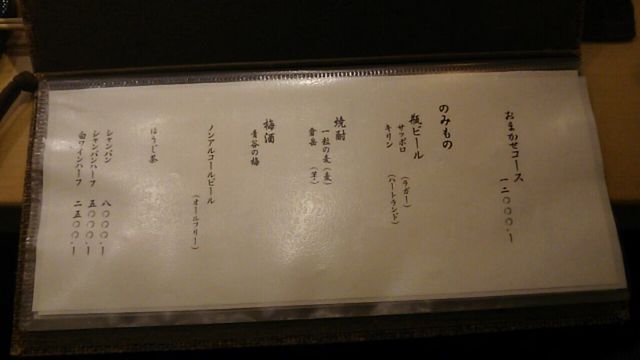 おまかせコース 一二〇〇〇.ー
のみもの
瓶ビール
サッポロ (ラガー)
キリン (ハートランド)
焼酎
一粒の麦 (麦)
(芋)
梅酒
青谷の梅
ノンアルコールビール
(オールフリー)
ほうじ茶
シャンパン 八〇〇〇.ー
シャンパンハーフ 五〇〇〇.ー
白ワインハーフ 二五〇〇.ー